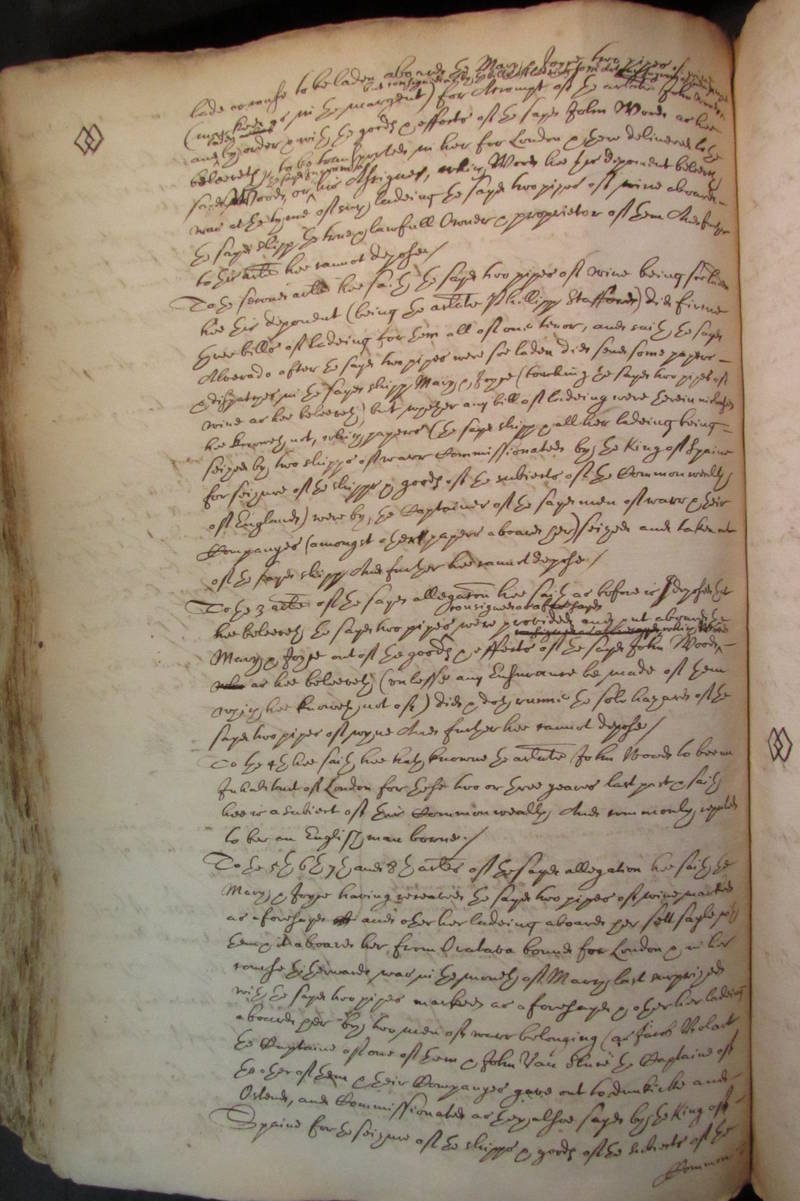 lade or cause to be laden aboard the Mary & Joyce two pipes of
(marked as in the margent) for Accompt of the arlate John Woods
and by order & with the goods & effects of the sayd John Woods as hee
beleeveth to be transported in her for London & there delivered to the
sayd Woods or his Assignes, which Woods hee this deponent beleeveth
was at the tyme of such ladeing the sayd two pipes of wine aboard
the sayd shipp the true & lawfull Owner & proprietor of them And further
to this arlate hee cannot depose./
To the second arlate hee saith the sayd two pipes of wine being soe laden
hee this deponent (being the arlate Phillipp Stafford) did firme
three bills of ladeing for them all of one tenor, and saith the sayd
Alverado after the sayd two pipes were soe laden did send some papers
& dispatches in the sayd shipp Mary & Joyce (touching the sayd two pipes of
wine as hee beleeveth) but whether any bill of ladeing were therein included
hee knoweth not, which papers (the sayd shipp & all her ladeing being
seized by two shipps of warr Commissionated by the King of Spaine
for seizure of the shipps & goods of the subiects of the Commonwealth
of England) were by the Captaines of the sayd men of warr & their
Companyes (amongst other papers aboard her) seized and taken out
of the sayd shipp And further hee cannot depose /
To the 3 arlate of the sayd allegation hee saith as before is deposed that
consigned as aforesayd
hee beleeveth the sayd two pipes were provided and put aboard the
Mary & Joyce out of the goods & effects of the sayd John Woods
who as hee beleeveth (unlesse any Ensurance be made of them
which hee knoweth not of) did & doth runne the sole hazard of the
sayd two pipes of wyne And further hee cannot depose /
To the 4th hee saith hee hath knowne the arlate John Woods to bee an
Inhabitant of London for these two or three yeares last past & saith
hee is a subiect of this Commonwealth And commonly reputed
to bee an English man borne./
To the 5th 6th 7th and 8th arles of the sayd allegation hee saith the
Mary & Joyce having received the sayd two pipes of wine marked
as aforesayd and other her ladeing aboard her sett sayle with
them aboard her from Oratava bound for London & in her
course thitherwards was in the moneth of May last surprized
with the sayd two pipes marked as aforesayd & other her ladeing
aboard her by two men of warr belonging (as
the Captaine of one of them & John Van the Captaine of
the other of them & their Companyes gave out) to Dunkirke and
Ostend, and Commissionated as they alsoe sayd by the King of
Spaine for the seizure of the shipps & goods of the subiects of the
Common